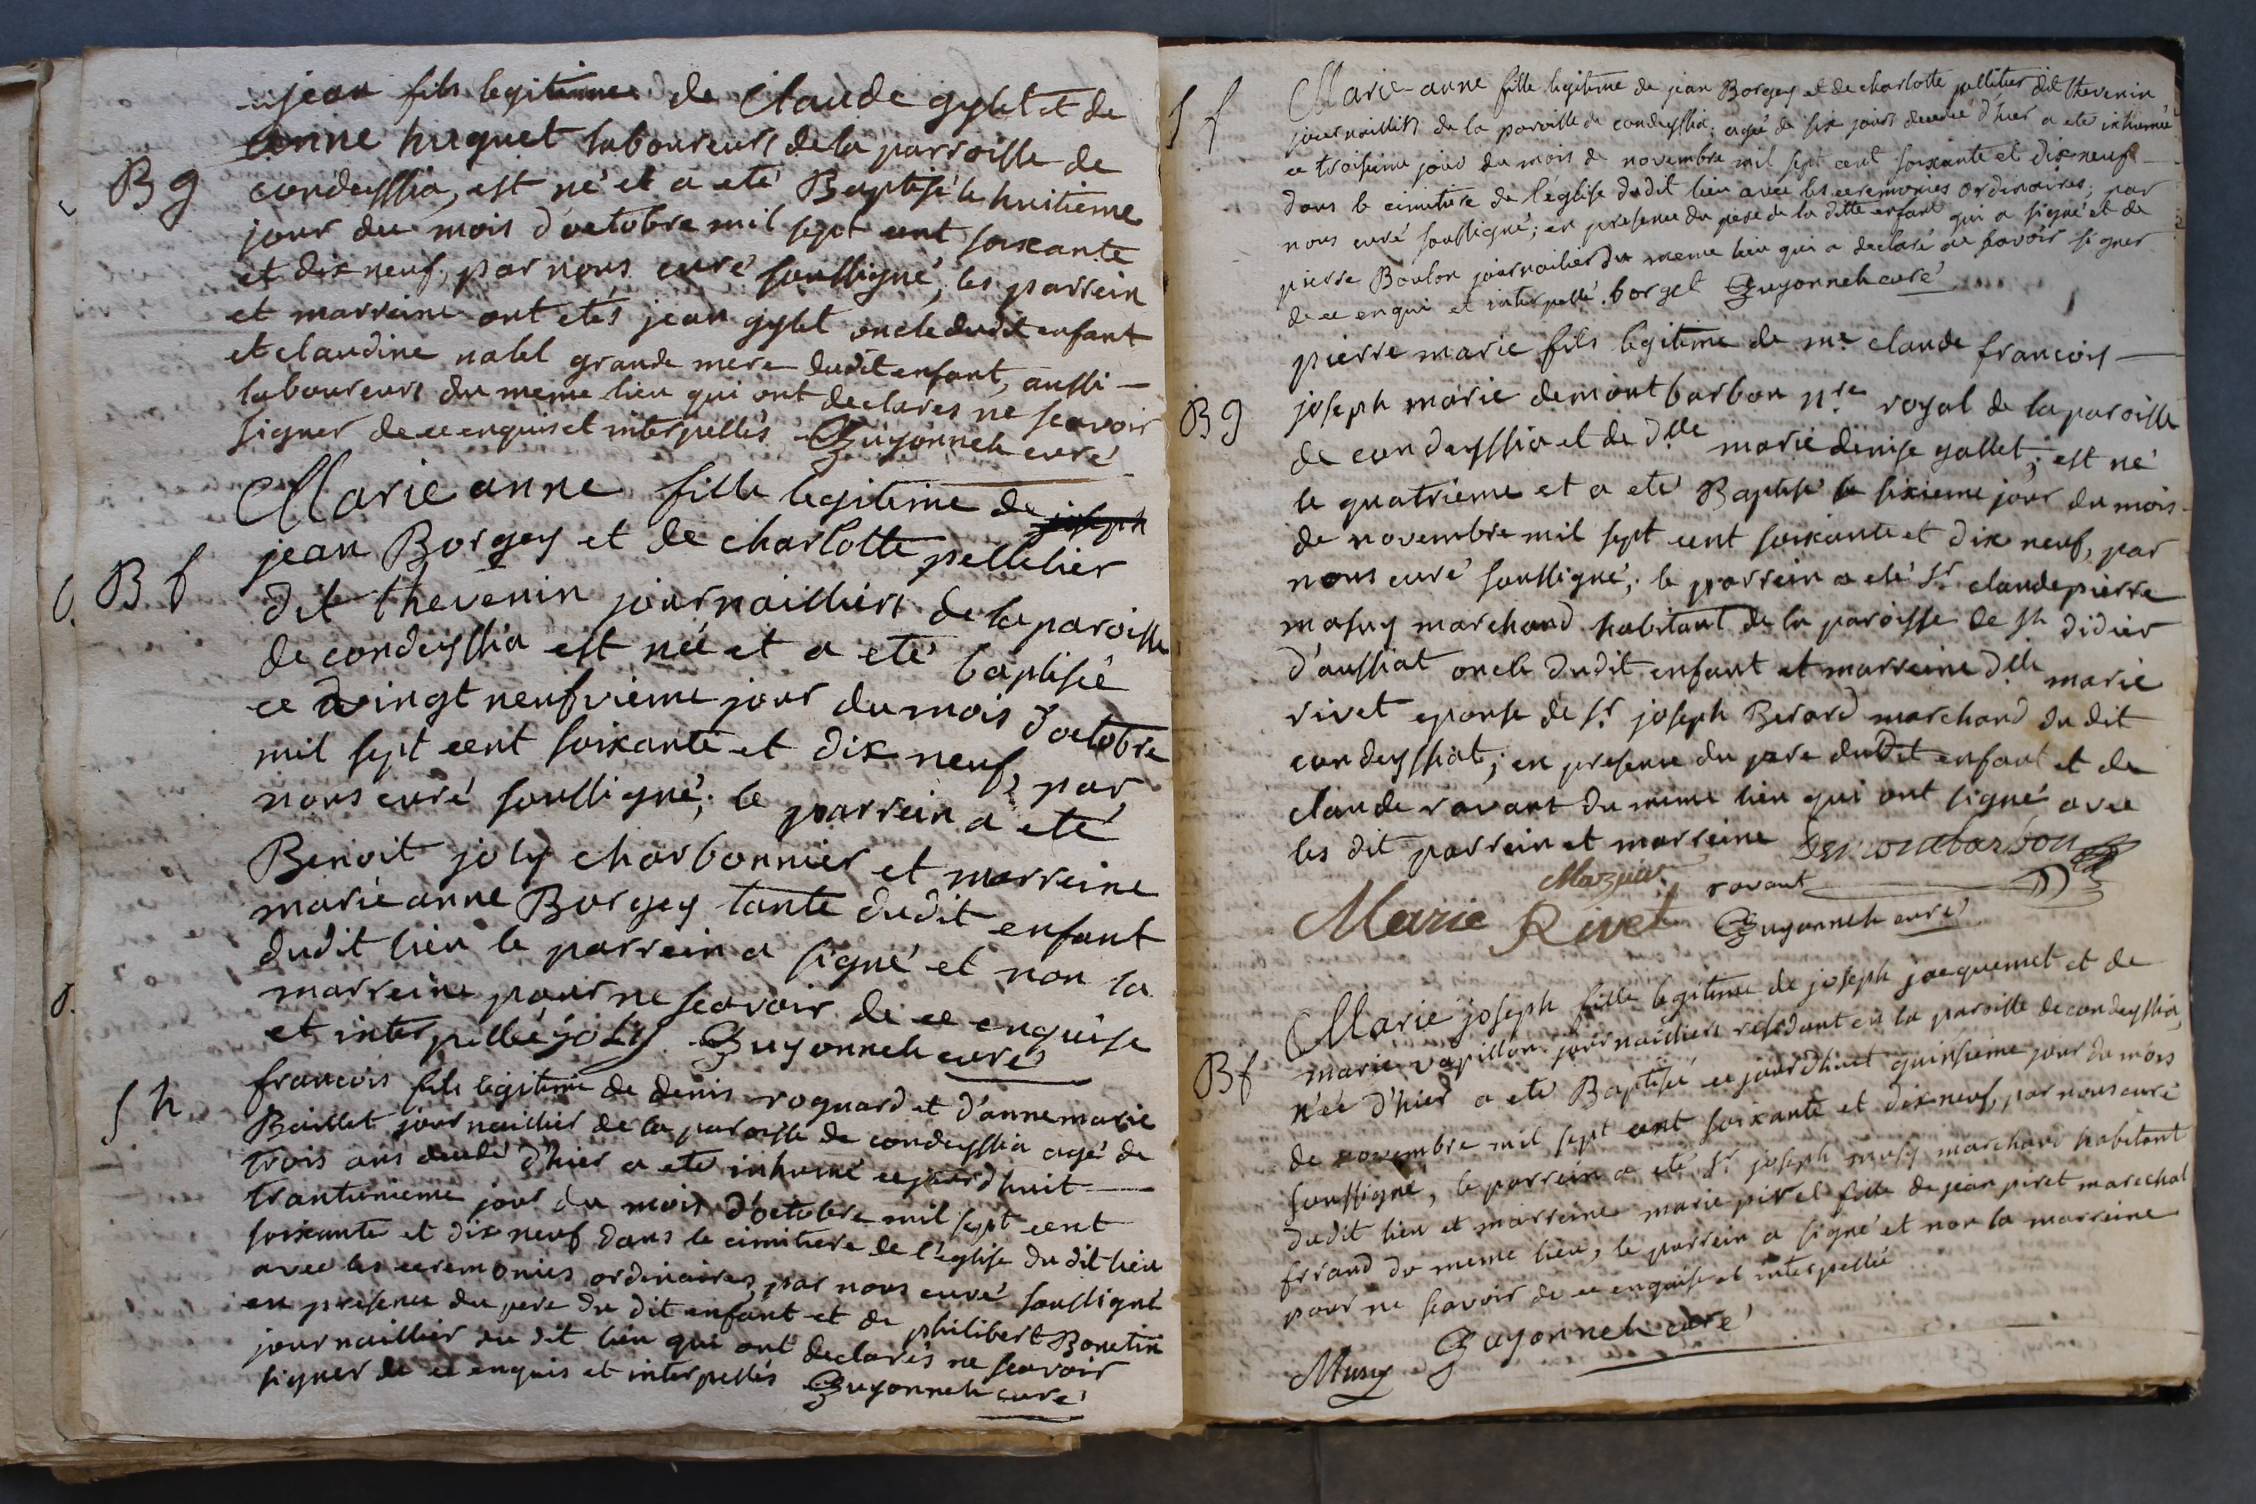 jean fils legitime de Claude gylet et de
anne huguet laboureurs de la parroisse de
B g
condeyssia, est né et a eté Baptisé le huitieme
jour du mois d'octobre mil sept cent soixante
et dix neuf, par nous curé soussigné, les parrein
et marreine ont etés jean gylet oncle dudit enfant
et claudine nalet grande mere dudit enfant, aussi
laboureurs du meme lieu qui ont declarés ne scavoir
signer de ce enquis et interpellés. Guyonneh curé
Marie anne fille legitime de joseph
jean Borgey et de charlotte pelletier
B f
dit thevenin journailliers de la paroisse
de condeyssia est née et a eté baptisée
ce vingt neufvieme jour du mois d'octobre
mil sept cent soixante et dix neuf, par
nous curé soussigné; le parrein a eté
Benoit joly charbonnier et marreine
marie anne Borgey tante dudit enfant
dudit lieu le parrein a signé et non la
marreine pour ne scavoir de ce enquise
et interpellée joly Guyonneh curé
S h
francois fils legitime de denis roguard et d'anne marie
Baillet journaillier de la paroisse de condeyssia agé de
trois ans decedé d'hier a eté inhumé cejourdhuit
trantunieme jour du mois d'octobre mil sept cent
soixante et dix neuf dans le cimitiere de l'eglise du dit lieu
avec les ceremonies ordinaires, par nous curé soussigné
en presence du pere du dit enfant et de philibert Bonetin
journaillier du dit lieu qui ont declarés ne scavoir
signer de ce enquis et interpellés Guyonneh curé
S f
Marie-anne fille legitime de jean Borgey et de charlotte pelletier dit thevenin
journailliers de la paroisse de condeyssia; agée de six jours decedée d'hier a eté inhumée
ce troisieme jour du mois de novembre mil sept cent soixante et dix neuf
dans le cimitiere de l'église dudit lieu avec les ceremonies ordinaires; par
nous curé soussigné; en presence du pere de la ditte enfant qui a signé et de
pierre Boulon journailier du meme lieu qui a declaré ne scavoir signer
de ce enquis et interpellé. borget Guyonneh curé
pierre marie fils legitime de me claude francois
B g
joseph marie demontbarbon nre royal de la paroisse
de condeyssia et de dlle marie denise gallet; est né
le quatrieme et a eté Baptisé le sixieme jour du mois
de novembre mil sept cent soixante et dix neuf, par
nous curé soussigné; le parrein a eté sr claude pierre
masuy marchand habitant de la paroisse de st didier
d'aussiat oncle dudit enfant et marreine dlle marie
rivet epouse de sr joseph Berard marchand du dit
condeyssiat; en presence du pere dudit enfant et de
claude ravant du meme lieu qui ont signé avec
les dit parrein et marreine Demontbarbon
Mazuir ravant
Marie Rivet Guyonneh curé
Marie joseph fille legitime de joseph jacquemet et de
marie vapillon journailliers residant en la paroisse de condeyssia,
B f
née d'hier a eté Baptisée cejourdhuit quinsieme jour du mois
de novembre mil sept cent soixante et dix neuf, par nous curé
soussigné, le parrein a eté sr joseph musy marchand habitant
dudit lieu et marreine marie piret fille de jean piret marechal
ferrand du meme lieu, le parrein a signé et non la marreine
pour ne scavoir de ce enquise et interpellée
Guyonneh curé
Musy